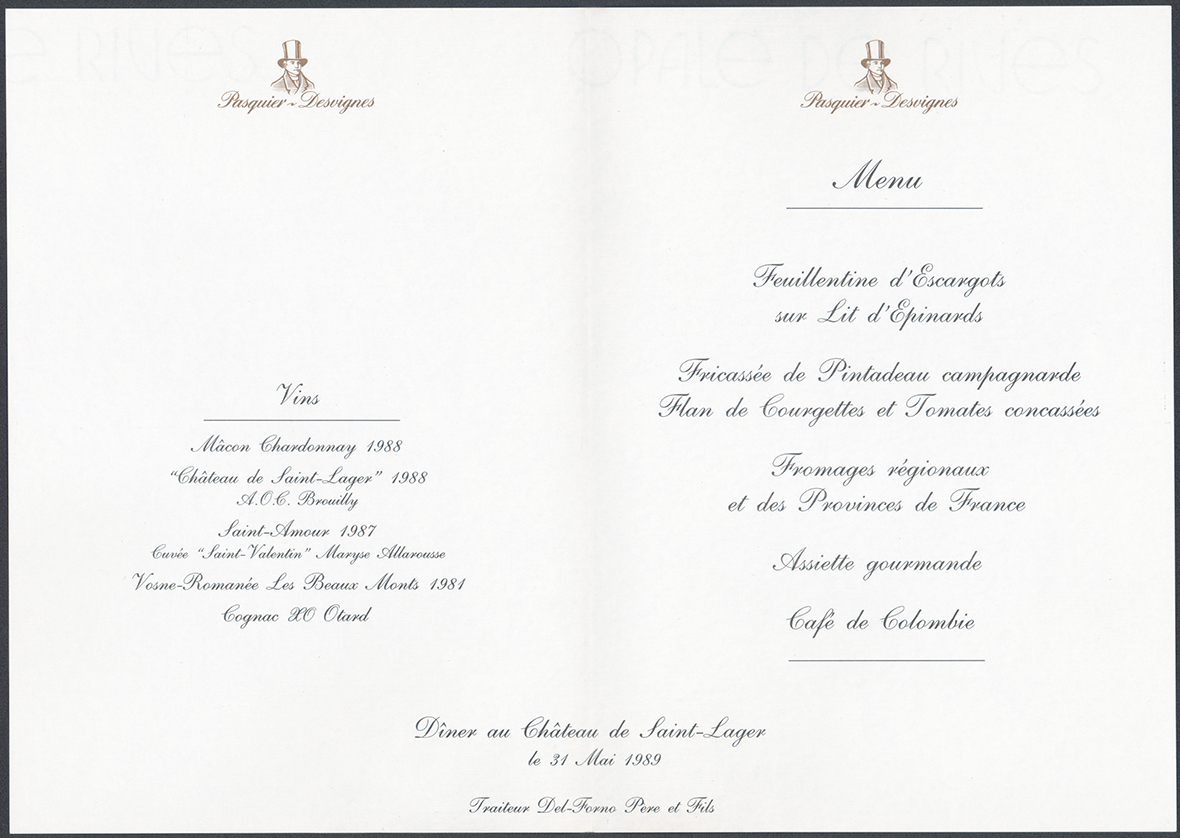 Pasquier~Desvignes
Vins
Mâcon Chardonnay 1988
“Château de Saint-Lager” 1988
A.O.C. Brouilly
Saint-Amour 1987
Cuvée “Saint-Valentin” Maryse Allarousse
Vosne-Romanée Les Beaux Monts 1981
Cognac XO Otard
OPALE DE RIVES
Pasquier~Desvignes
Menu
Feuillentine d'Escargots
sur Lit d'Epinards
Fricassée de Pintadeau campagnarde
Flan de Courgettes et Tomates concassées
Fromages régionaux
et des Provinces de France
Assiette gourmande
Café de Colombie
Dîner au Château de Saint-Lager
le 31 Mai 1989
Traiteur Del-Forno Pere et Fils